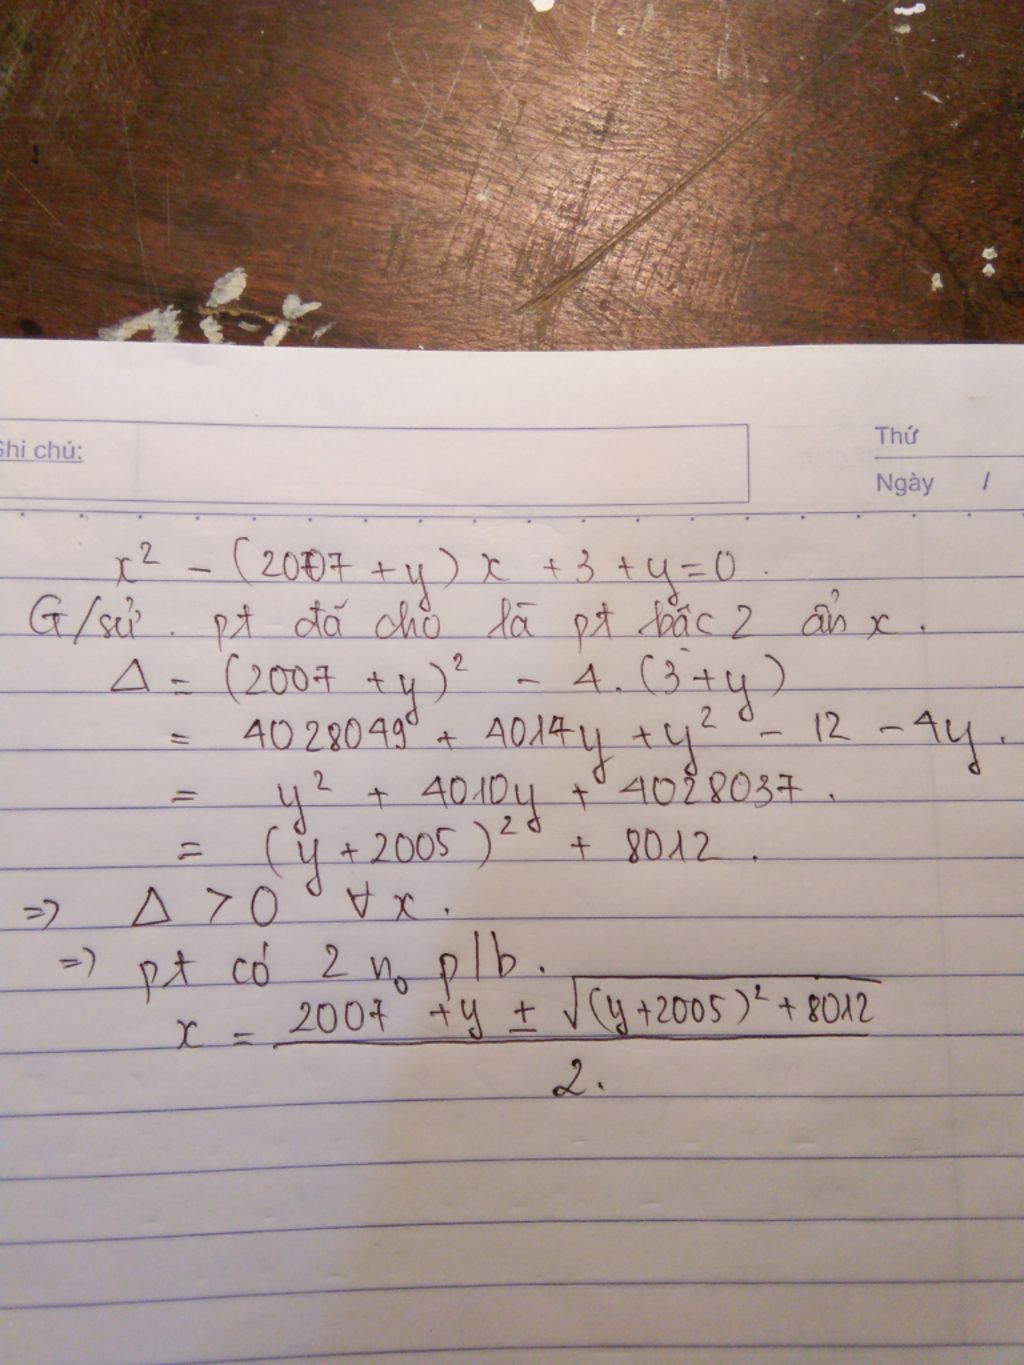 Ghi chú:
Thứ
Ngày /
x² - (2007 + y) x + 3 + y = 0.
G/sử. pt đã cho là pt bậc 2 ẩn x.
Δ = (2007 + y)² - 4.(3+y)
= 4028049 + 4014y + y² - 12 - 4y.
= y² + 4010y + 4028037.
= (y + 2005)² + 8012.
=> Δ > 0 ∀x.
=> pt có 2 n₀ p/b.
x = (2007 + y ± √((y+2005)² + 8012)) / 2.